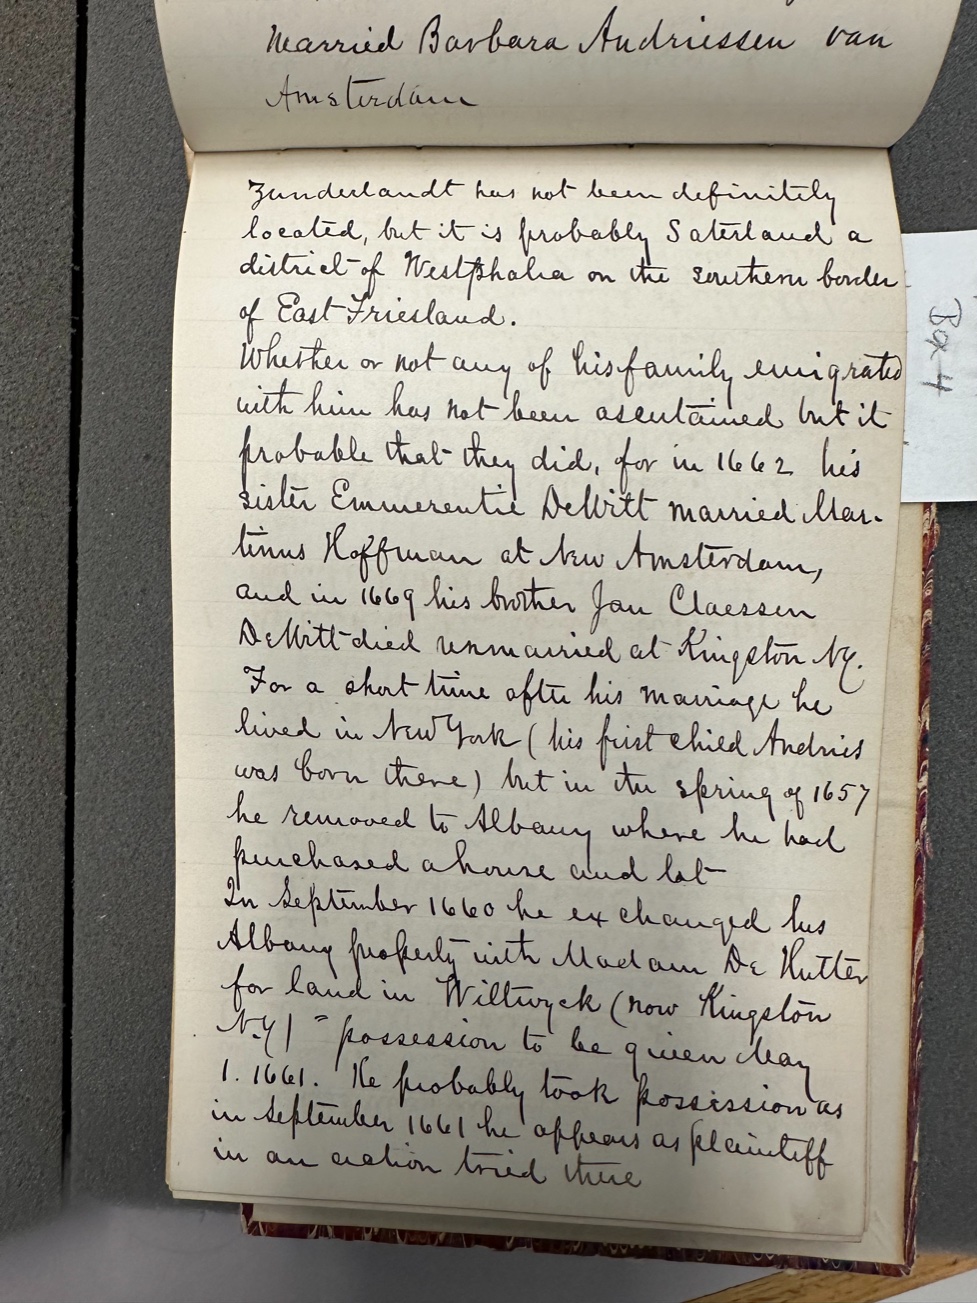 married Barbara Andriessen van
Amsterdam
Zunderlandt has not been definitely
located, but it is probably Saterland a
district of Westphalia on the southern border
of East Friesland.
Whether or not any of his family emigrated
with him has not been ascertained but it
probable that they did, for in 1662 his
sister Emmerentie DeWitt married Mar-
tinus Hoffman at New Amsterdam,
and in 1669 his brother Jan Claessen
DeWitt died unmarried at Kingston NY.
For a short time after his marriage he
lived in New York (his first child Andries
was born there) but in the spring of 1657
he removed to Albany where he had
purchased a house and lot
In September 1660 he exchanged his
Albany property with Madam De Hutter
for land in Wiltwyck (now Kingston
N.Y) " possession to be given May
1. 1661. He probably took possession as
in September 1661 he appears as plaintiff
in an action tried there
Box 4